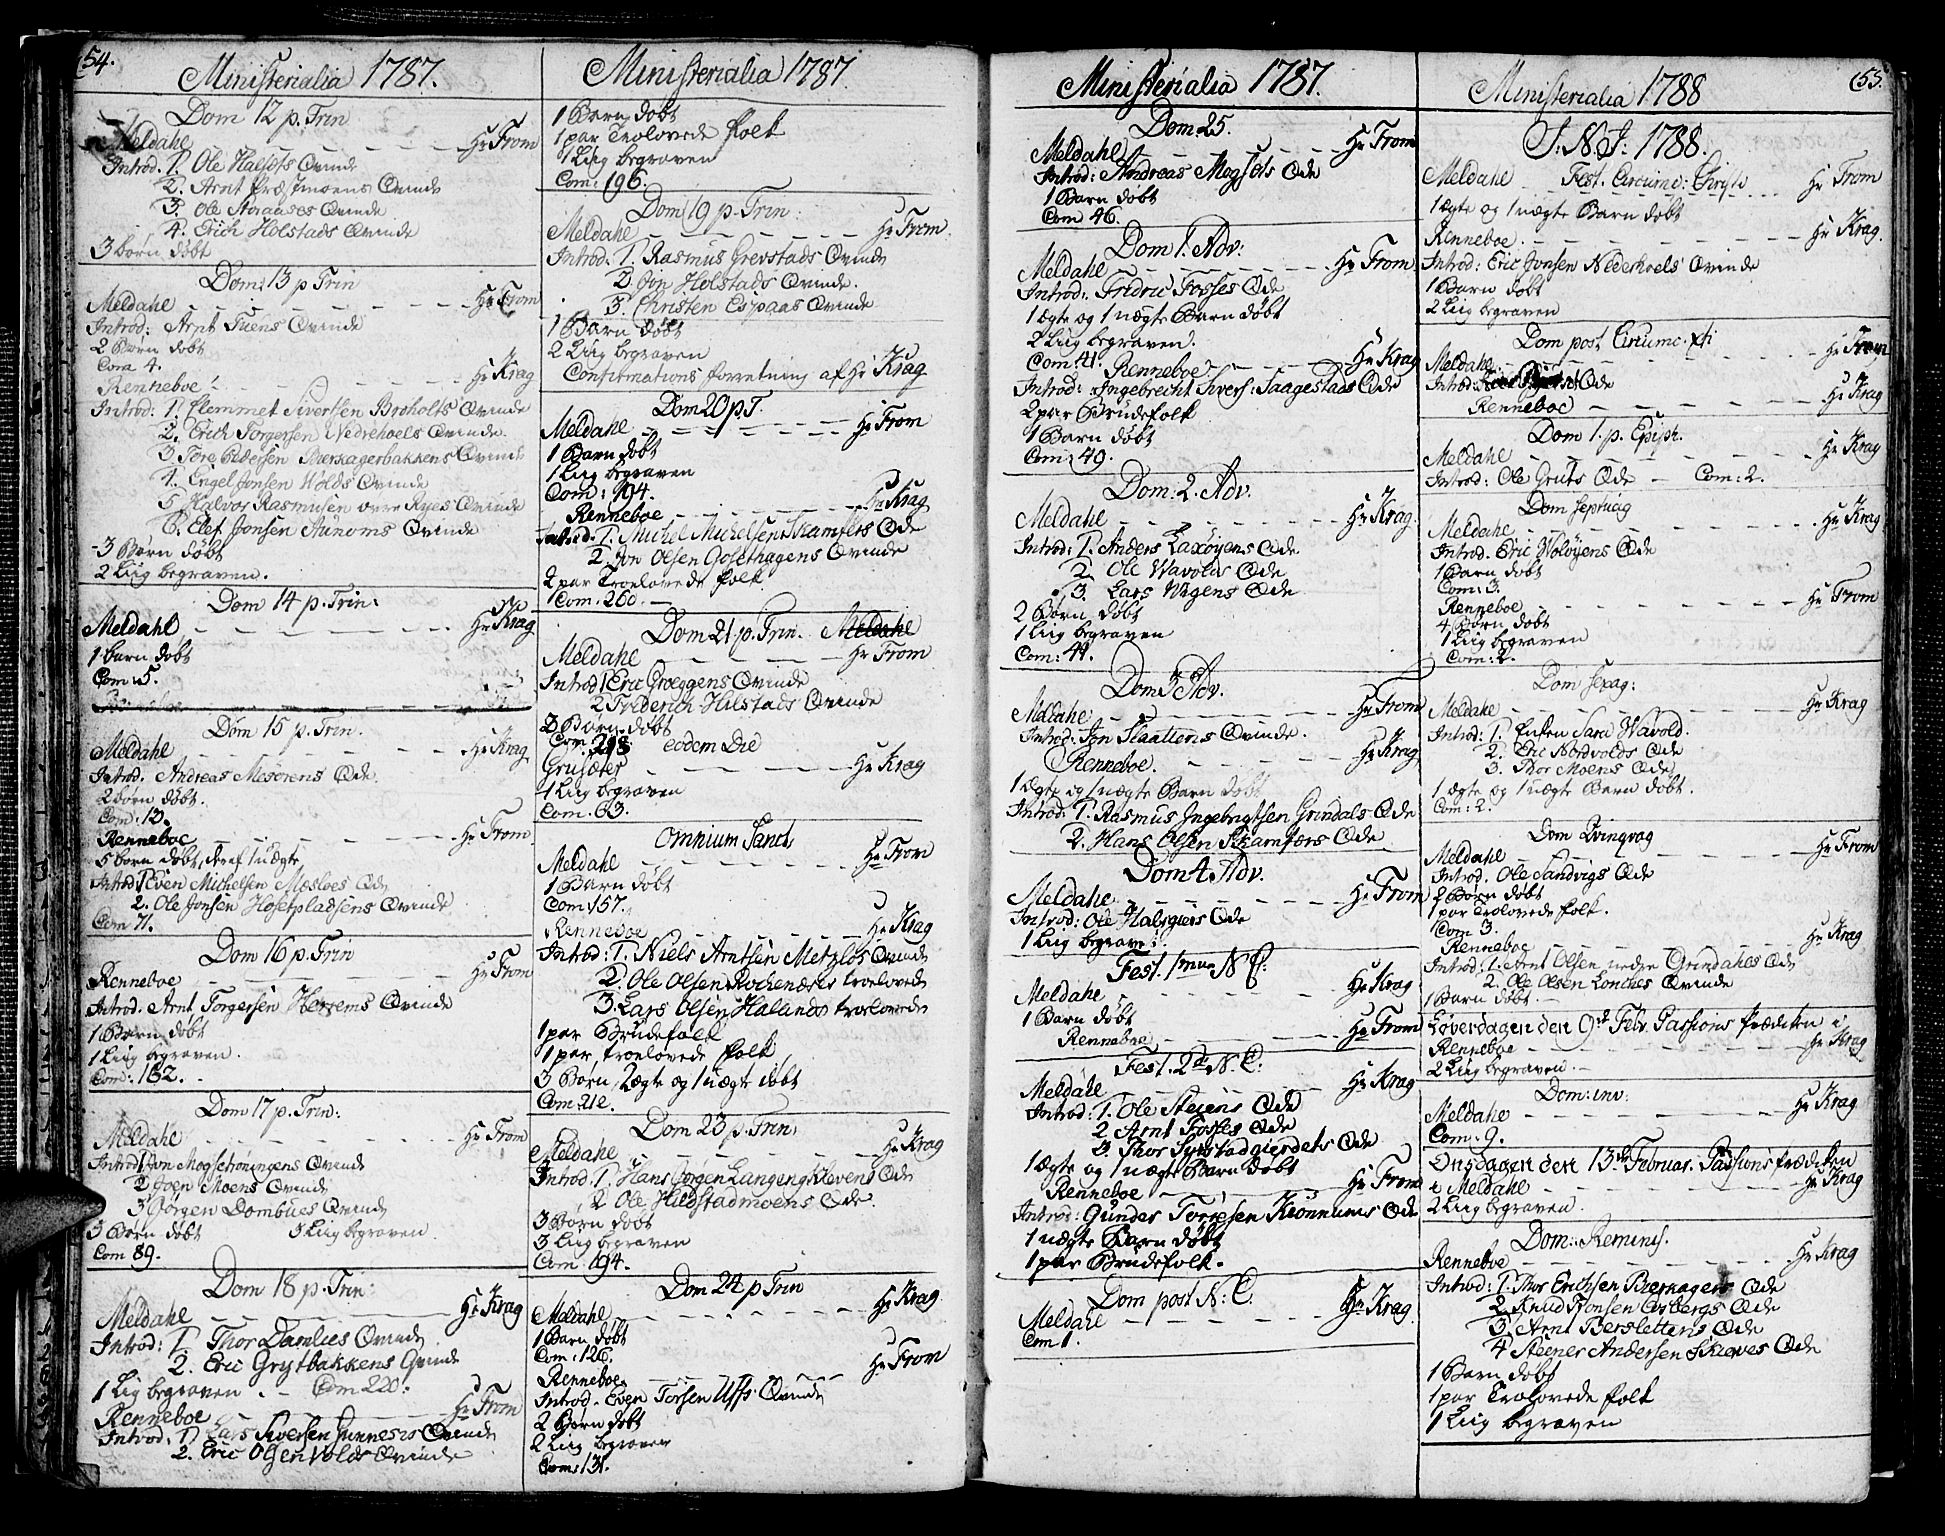 54.
Ministerialia 1787.
Dom 12 p. Trin
Meldahl - - - Hr From
Introd. 1. Ole Halsets Qvinde
2. Arnt Præstmoens Qvinde
3. Ole Aaraases Qvinde
4. Erich Holstads Qvinde
3 Børn døbt
Dom: 13 p Trin
Meldahl - - - Hr From
Introd: Arnt Tuens Qvinde
2 Børn døbt
Com 4.
Renneboe - - - Hr Krag
Introd: 1. Flemmet Sivertsen Broholts Qvinde
2. Erich Torgersen Nedrehoels Qvinde
3. Tore Pedersen Bierkagerbakkens Qvinde
4. Engel Jonsen Wolds Qvinde
5. Halvor Rasmusen øvre Ryes Qvinde
6. Elef Jonsen Aunoms Qvinde
3 Børn døbt
2 Liig begraven.
Dom 14 p. Trin:
Meldahl - - - Hr Krag
1 barn døbt
Com 5.
Dom 15 p. Trin.
Meldahl - - - Hr Krag
Introd. Andreas Moserens Qde
2 børn døbt.
Com: 13.
Renneboe - - - Hr From
5 børn døbt, deraf 1 uægte
Introd: 1 Even Michelsen Mæsloes Qde
2. Ole Jonsen Hosetpladsens Qvinde
Com 71.
Dom 16 p. Trin
Renneboe - - - Hr From
Introd. Arnt Torgersen Herrems Qvinde
1 Barn døbt
1 Liig begraven.
Com: 182.
Dom 17 p. Trin:
Meldahl - - - Hr From
Introd: 1 Jon Mogsetrøningens Qvinde
2 Joen Moens Qvinde
3 Jørgen Dombues Qvinde
3 Børn døbt 3 Liig begraven
Com 89.
Dom 18 p. Trin:
Meldahl - - - Hr Krag
Introd: 1. Thor Damlies Qvinde
2. Eric Grytbakkens Qvinde
1 Lig begraven . - Com 220.
Renneboe - - - Hr From
Introd: 1. Lars Siversen Gunnesis Qvinde
2. Eric Olsen Volds Qvinde
Ministerialia 1787
1 Barn døbt
1 par Trolovede folk
1 Liig begraven
Com: 196.
Dom 19 p. Trin:
Meldahl - - - Hr From
Introd: 1. Rasmus Grevstads Qvinde
2. Jon Holstads Qvinde.
3. Christen Espaas Qvinde
1 Barn døbt
2 Liig begraven
Confirmations forretning af Hr Krag
Dom 20 p T.
Meldahl - - - Hr From
1 Barn døbt
1 Liig begraven
Com: 194.
Renneboe - - - Hr Krag
Introd. 1. Michel Michelsen Skamfers Qde
2. Jon Olsen Gosethagens Qvinde
2 par Troelovede folk
Com. 260.
Dom 21 p. Trin. Meldahl
Meldahl - - - Hr From
Introd 1 Eric Græggens Qvinde
2 Friderich Hilstads Qvinde
3 Børn døbt
Com. 298. eodem Die
Grusæter - - - Hr Krag
1 Liig begraven
Com. 63.
Omnium Sanct
Meldahl - - - Hr From
1 Barn døbt
Com 157.
Renneboe - - - Hr Krag
Introd: 1. Niels Arntsen Metzlos Qvinde
2. Ole Olsen Rochenæsis troelovede
3. Lars Olsen Halands troelovede
1 par Brudefolk
1 par troelovede folk
3 Børn, 2 ægte og 1 uægte døbt
Com. 212.
Dom 23 p. Trin
Meldahl - - - Hr Krag
Introd. 1. Hans Jørgen Langengskievens Qde
2 Ole Hilstadmoens Qde.
3 Børn døbt
3 Liig begraven
Com. 194.
Dom 24 p Trin
Meldahl - - - Hr Krag
1 Barn døbt
Com: 126.
Renneboe - - - Hr From
Introd. Even Torsen Uffs Qvinde
2 Børn døbt
2 Liig begraven
Com: 131.
Ministerialia 1787.
Dom 25.
Meldahl - - - Hr From
Introd: Andreas Mogsets Qde
1 Barn døbt
Com 46.
Dom 1. Adv:
Meldahl - - - Hr From
Introd: Fridric Fosses Qde
1 ægte og 1 uægte Barn døbt
2 Liig begraven.
Com: 41. Renneboe - - - Hr Krag
Introd: Ingebrecht Sivers: Saagestaas Qde
2 par Brudefolk
1 Barn døbt
Com: 49.
Dom: 2. Adv.
Meldahl - - - Hr Krag.
Introd: 1. Anders Laxøyens Qde
2. Ole Wavolds Qde
3. Lars Wigens Qde
2 Børn døbt
1 Liig begraven
Com: 44.
Dom 3 Adv.
Meldahl - - - Hr From
Introd: Jon Slaattens Qvinde.
Renneboe. - - - Hr Krag
1 ægte og 1 uægte Barn døbt
Introd: 1. Rasmus Ingebrigtsen Grindals Qde
2. Hans Olsen Skamfers Qde
Dom 4 Adv.
Meldahl - - - Hr From
Introd: Ole Halsgiers Qde
1 Liig begraven.
Fest. 1mum N C:
Meldahl - - - Hr Krag
1 Barn døbt
Renneboe - - - Hr From
Fest. 2d N. C:
Meldahl - - - Hr Krag
Introd: 1. Ole Steiens Qde
2. Arnt Fosses Qde
3. Thor Syrstadgierdets Qde
1 ægte og 1 uægte Barn døbt
Renneboe - - - Hr From
Introd: Gunder Torresen Kronnums Qde
1 uægte Barn døbt
1 par Brudefolk.
Dom post N: C.
Meldahl - - - Hr Krag
Com 1.
Ministerialia 1788
55.
I: N. J: 1788.
Fest. Circumc: Christi
Meldahl - - - Hr From
1 ægte og 1 uægte Barn døbt
Renneboe - - - Hr Krag.
Introd: Eric Jonsen Nederhoels Qvinde
1 Barn døbt
2 Liig begraven
Dom post Circumc. Xti
Meldahl - - - Hr From
Introd: Qde
Renneboe - - - Hr Krag
Dom 1. p. Epiph.
Meldahl - - - Hr Krag
Introd: Ole Gruts Qde - Com: 2.
Dom septuag
Meldahl - - - Hr Krag
Introd. Eric Woløyens Qde
1 Barn døbt
Com: 3.
Renneboe - - - Hr From
4 Børn døbt
1 Liig begraven
Com: 2.
Dom sexag:
Meldahl - - - Hr Krag
Introd: 1. Enken Sara Wavold.
2. Eric Nordvolds Qde
3. Thor Moens Qde
1 ægte og 1 uægte Barn døbt.
Com: 2.
Dom Qvinqvag
Meldahl - - - Hr From
Introd. Ole Sandvigs Qde
2 Børn døbt
1 par Trolovede folk.
Com 3.
Renneboe - - - Hr Krag
Introd: 1. Arnt Olsen nedre Grindahls Qde
2. Ole Olsen Lonches Qvinde
1 Barn døbt. -
Løverdagen den 9de Febr. Passions prædiken i
Renneboe - - - Hr Krag
2 Liig begraven. -
Dom: inv:
Meldahl - - - Hr Krag
Com: 9.
Onsdagen den 13de Februar. Passions prædiken
i Meldahl - - - Hr Krag
2 Liig begraven.
Dom: Reminis.
Renneboe - - - Hr Krag
Introd: 1. Thor Erichsen Bierkagers Qde
2. Knud Jonsen Aasbergs Qde
3. Arnt Berslettens Qde
4 Steener Andersen Skieves Qde
1 Barn døbt
1 par Trolovede folk
1 Liig begraven